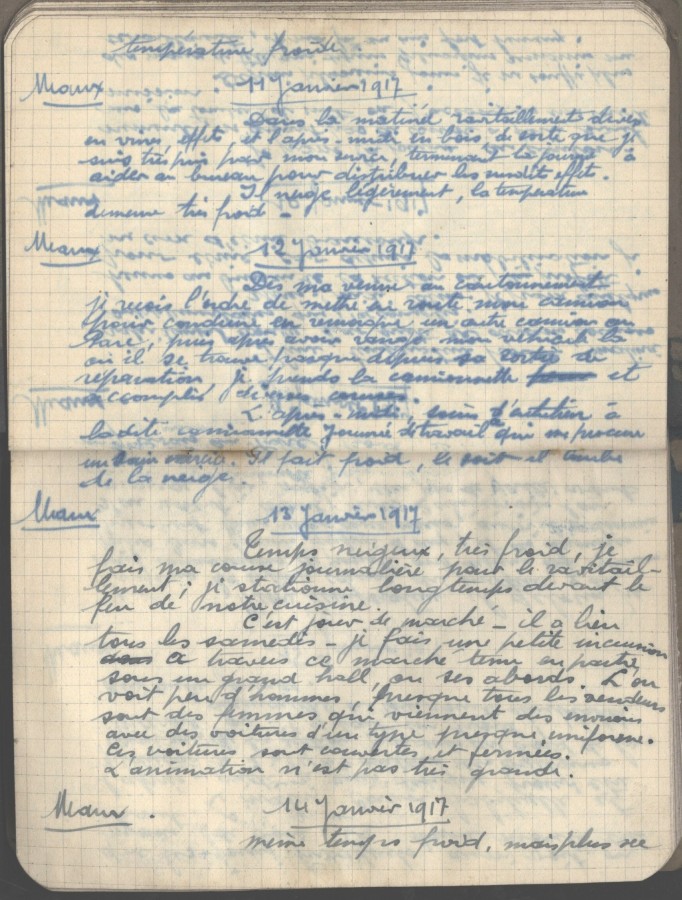 température froide
Meaux 11 Janvier 1917
Dans la matiné ravitaillement divers
en vivres, effets et l'après-midi en bois, de sorte que je
suis très pris par mon service, terminant la journée à
aider au bureau pour distribuer les susdits effets.
Il neige légèrement, la température
demeure très froid -
Meaux 12 Janvier 1917
Dès ma venue au cantonnement
je reçois l'ordre de mettre en route mon camion
pour conduire en remorque un autre camion au
Parc, puis après avoir rangé mon véhicule là
où il se trouve presque depuis sa sortie de
réparation, je prends la camionnette et
accomplis diverses courses.
L'après-midi, soins d'entretien à
ladite camionnette Journée de travail qui me procure
un. Il fait froid, le soir il tombe
de la neige.
Meaux 13 Janvier 1917
Temps neigeux, très froid, je
fais ma course journalière pour le ravitail-
lement; je stationne longtemps devant le
feu de notre cuisine.
C'est jour de marché - il a lieu
tous les samedis - je fais une petite incursion
à travers ce marché tenu en partie
sous un grand hall, ou ses abords. L'on
voit peu d'hommes, presque tous les vendeurs
sont des femmes qui viennent des environs
avec des voitures d'un type presque uniforme.
Ces voitures sont couvertes et fermées.
L'animation n'est pas très grande.
Meaux. 14 Janvier 1917
même temps froid, mais plus sec